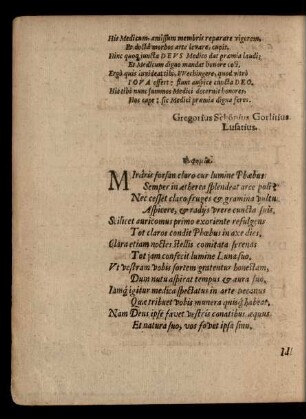 Hic Medicum amissum membris reparare vigorem,
Et doctâ morbos arte levare, cupit.
Hinc quoq; juncta DEVS Medico dat præmia laudi;
Et Medicum digno mandat honore coli,
Ergò quie invideat tibi, VVechingere, quod vltrò
IOVA offert? fiunt auspice cuncta DEO.
Hic tibi nunc summos Medici decernit honores
Hos cape; sic Medici præmia digna feres.
Gregorius Schönius Gorlitius
Lusatius.
Miraris forsan claro cur lumine Phœbus
Semper in ætherea splendeat arce poli?
Nec cesset claro fruges & gramina vultu
Aspicere, & radijs vrere cuncta suis,
Scilicet auricomus primo exoriente refulgens
Tot claros condit Phœbus in axe dies,
Clara etiam noctes stellis comitata serenas
Tot jam confecit lumine Luna suo,
Vt vestram vobis sortem gratentur honestam,
Dum nutu aspirat tempus & aura suo,
Iamq; igitur medica spectatus in arte Decanus
Quæ tribuet vobis munera quisq; habeat.
Nam Deus ipse favet vestris conatibus æquus,
Et natura suo, vos fovet ipsa sinu.